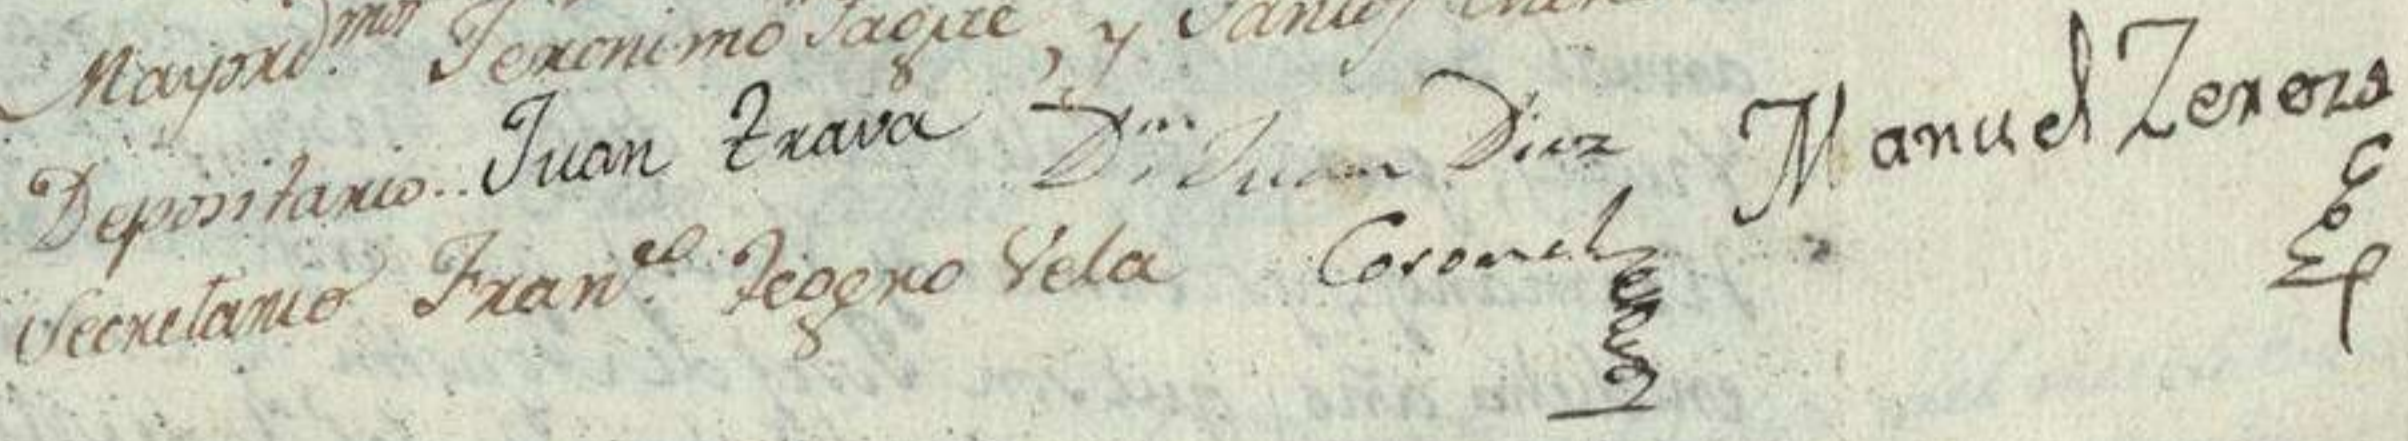 Mayord.mos Jeronimo Jaque, y Santos
Depositario.. Juan Trava Dn. Juan Diez Manuel Zerezo
Secretario Fran.co Tegero Vela Coronel